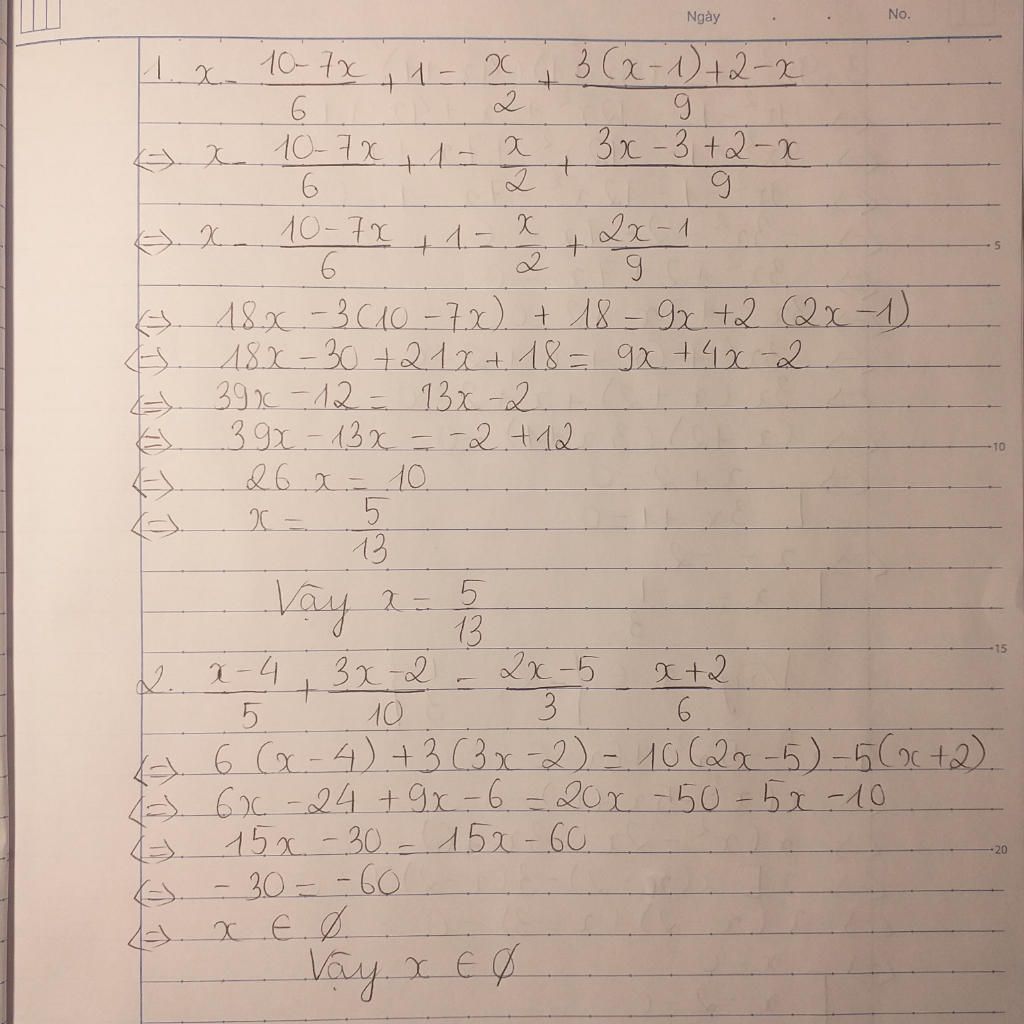 Ngày . . No.
1. x - (10-7x)/6 + 1 = x/2 + (3(x-1)+2-x)/9
<=> x - (10-7x)/6 + 1 = x/2 + (3x-3+2-x)/9
<=> x - (10-7x)/6 + 1 = x/2 + (2x-1)/9
5
<=> 18x - 3(10-7x) + 18 = 9x + 2(2x-1)
<=> 18x - 30 + 21x + 18 = 9x + 4x - 2
<=> 39x - 12 = 13x - 2
<=> 39x - 13x = -2 + 12
10
<=> 26x = 10
<=> x = 5/13
Vậy x = 5/13
15
2. (x-4)/5 + (3x-2)/10 = (2x-5)/3 - (x+2)/6
<=> 6(x-4) + 3(3x-2) = 10(2x-5) - 5(x+2)
<=> 6x - 24 + 9x - 6 = 20x - 50 - 5x - 10
<=> 15x - 30 = 15x - 60
20
<=> -30 = -60
<=> x ∈ ∅
Vậy x ∈ ∅